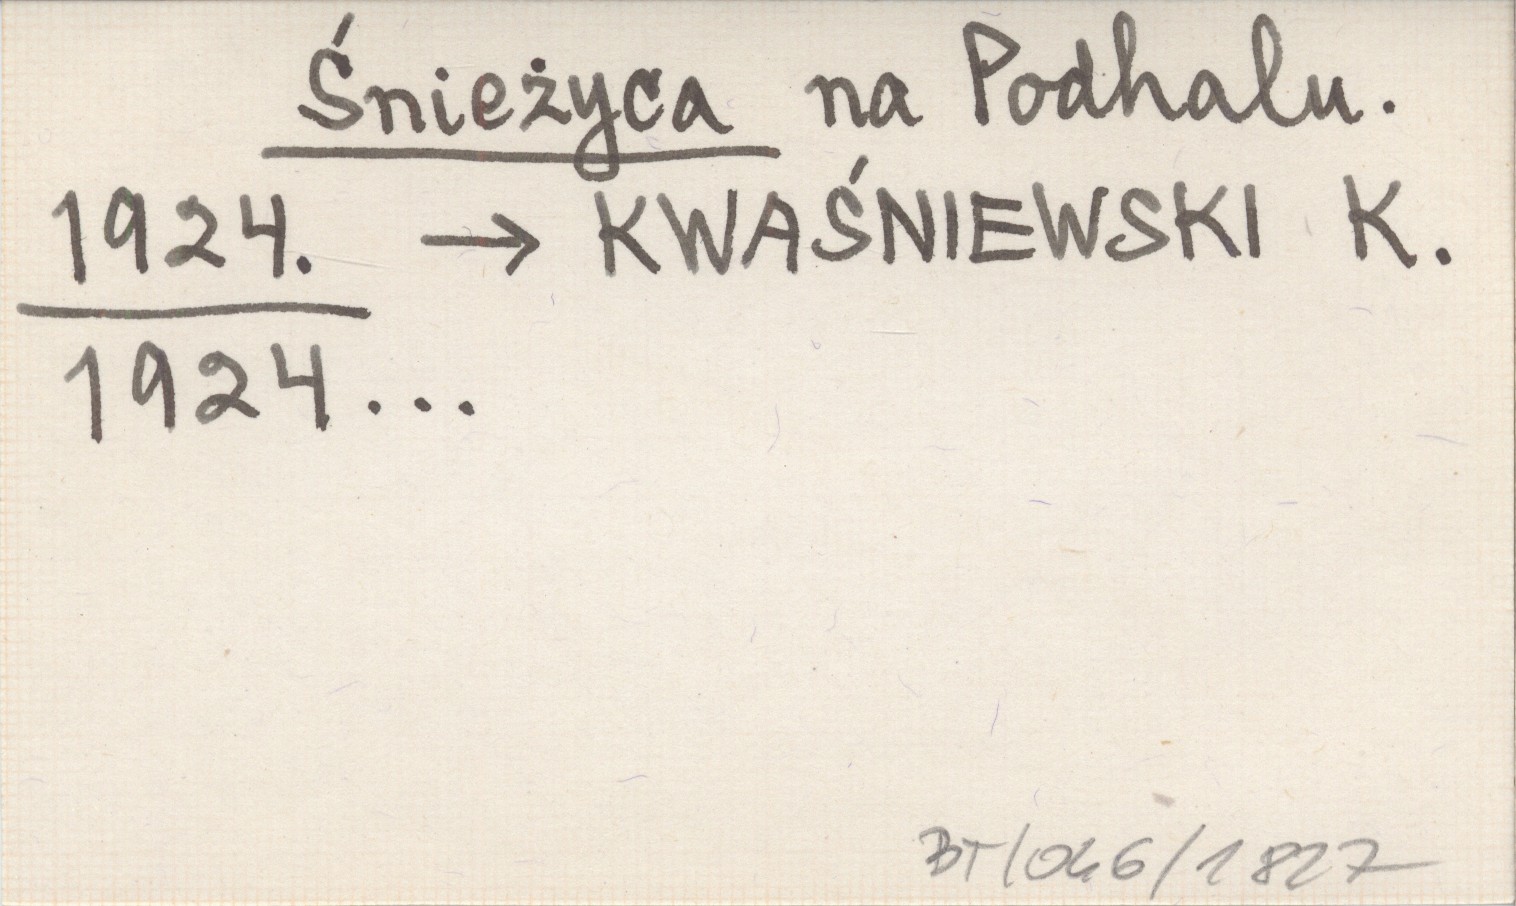 Śnieżyca na Podhalu.
1924. → KWAŚNIEWSKI K.
1924...
BT/046/1827